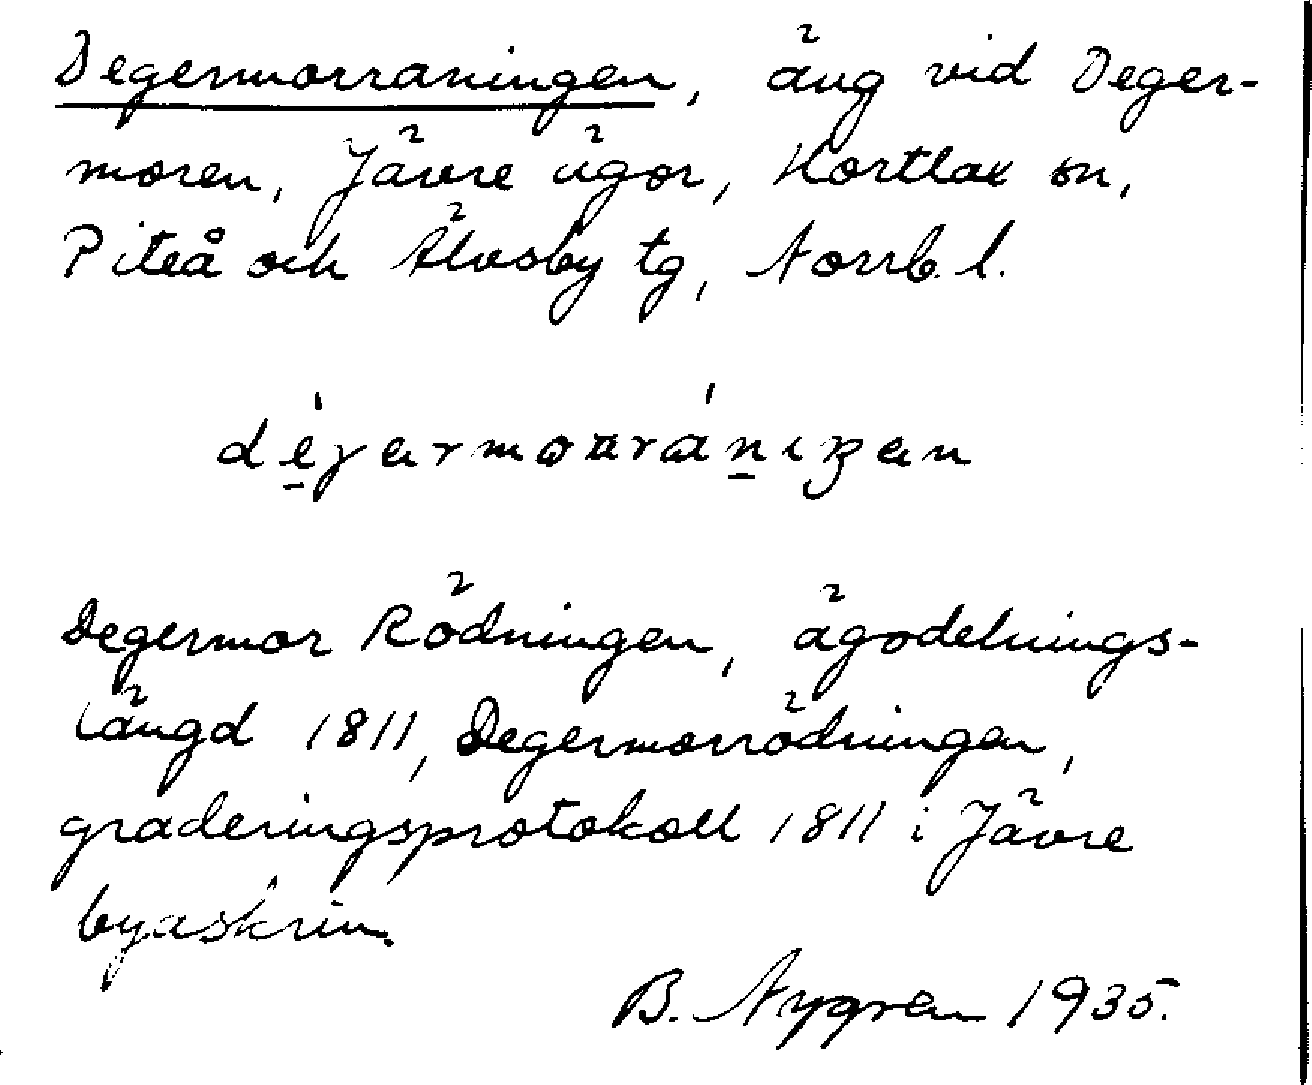 Degermorraningen, äng vid Deger-
moren, Jävre ägor, Hortlax sn,
Piteå och Älvsby tg, Norrb. l.
Degermor Rödningen, ägodelnings-
längd 1811, Degermorrödningen,
graderingsprotokoll 1811 i Jävre
byaskrin.
B. Nygren 1935.